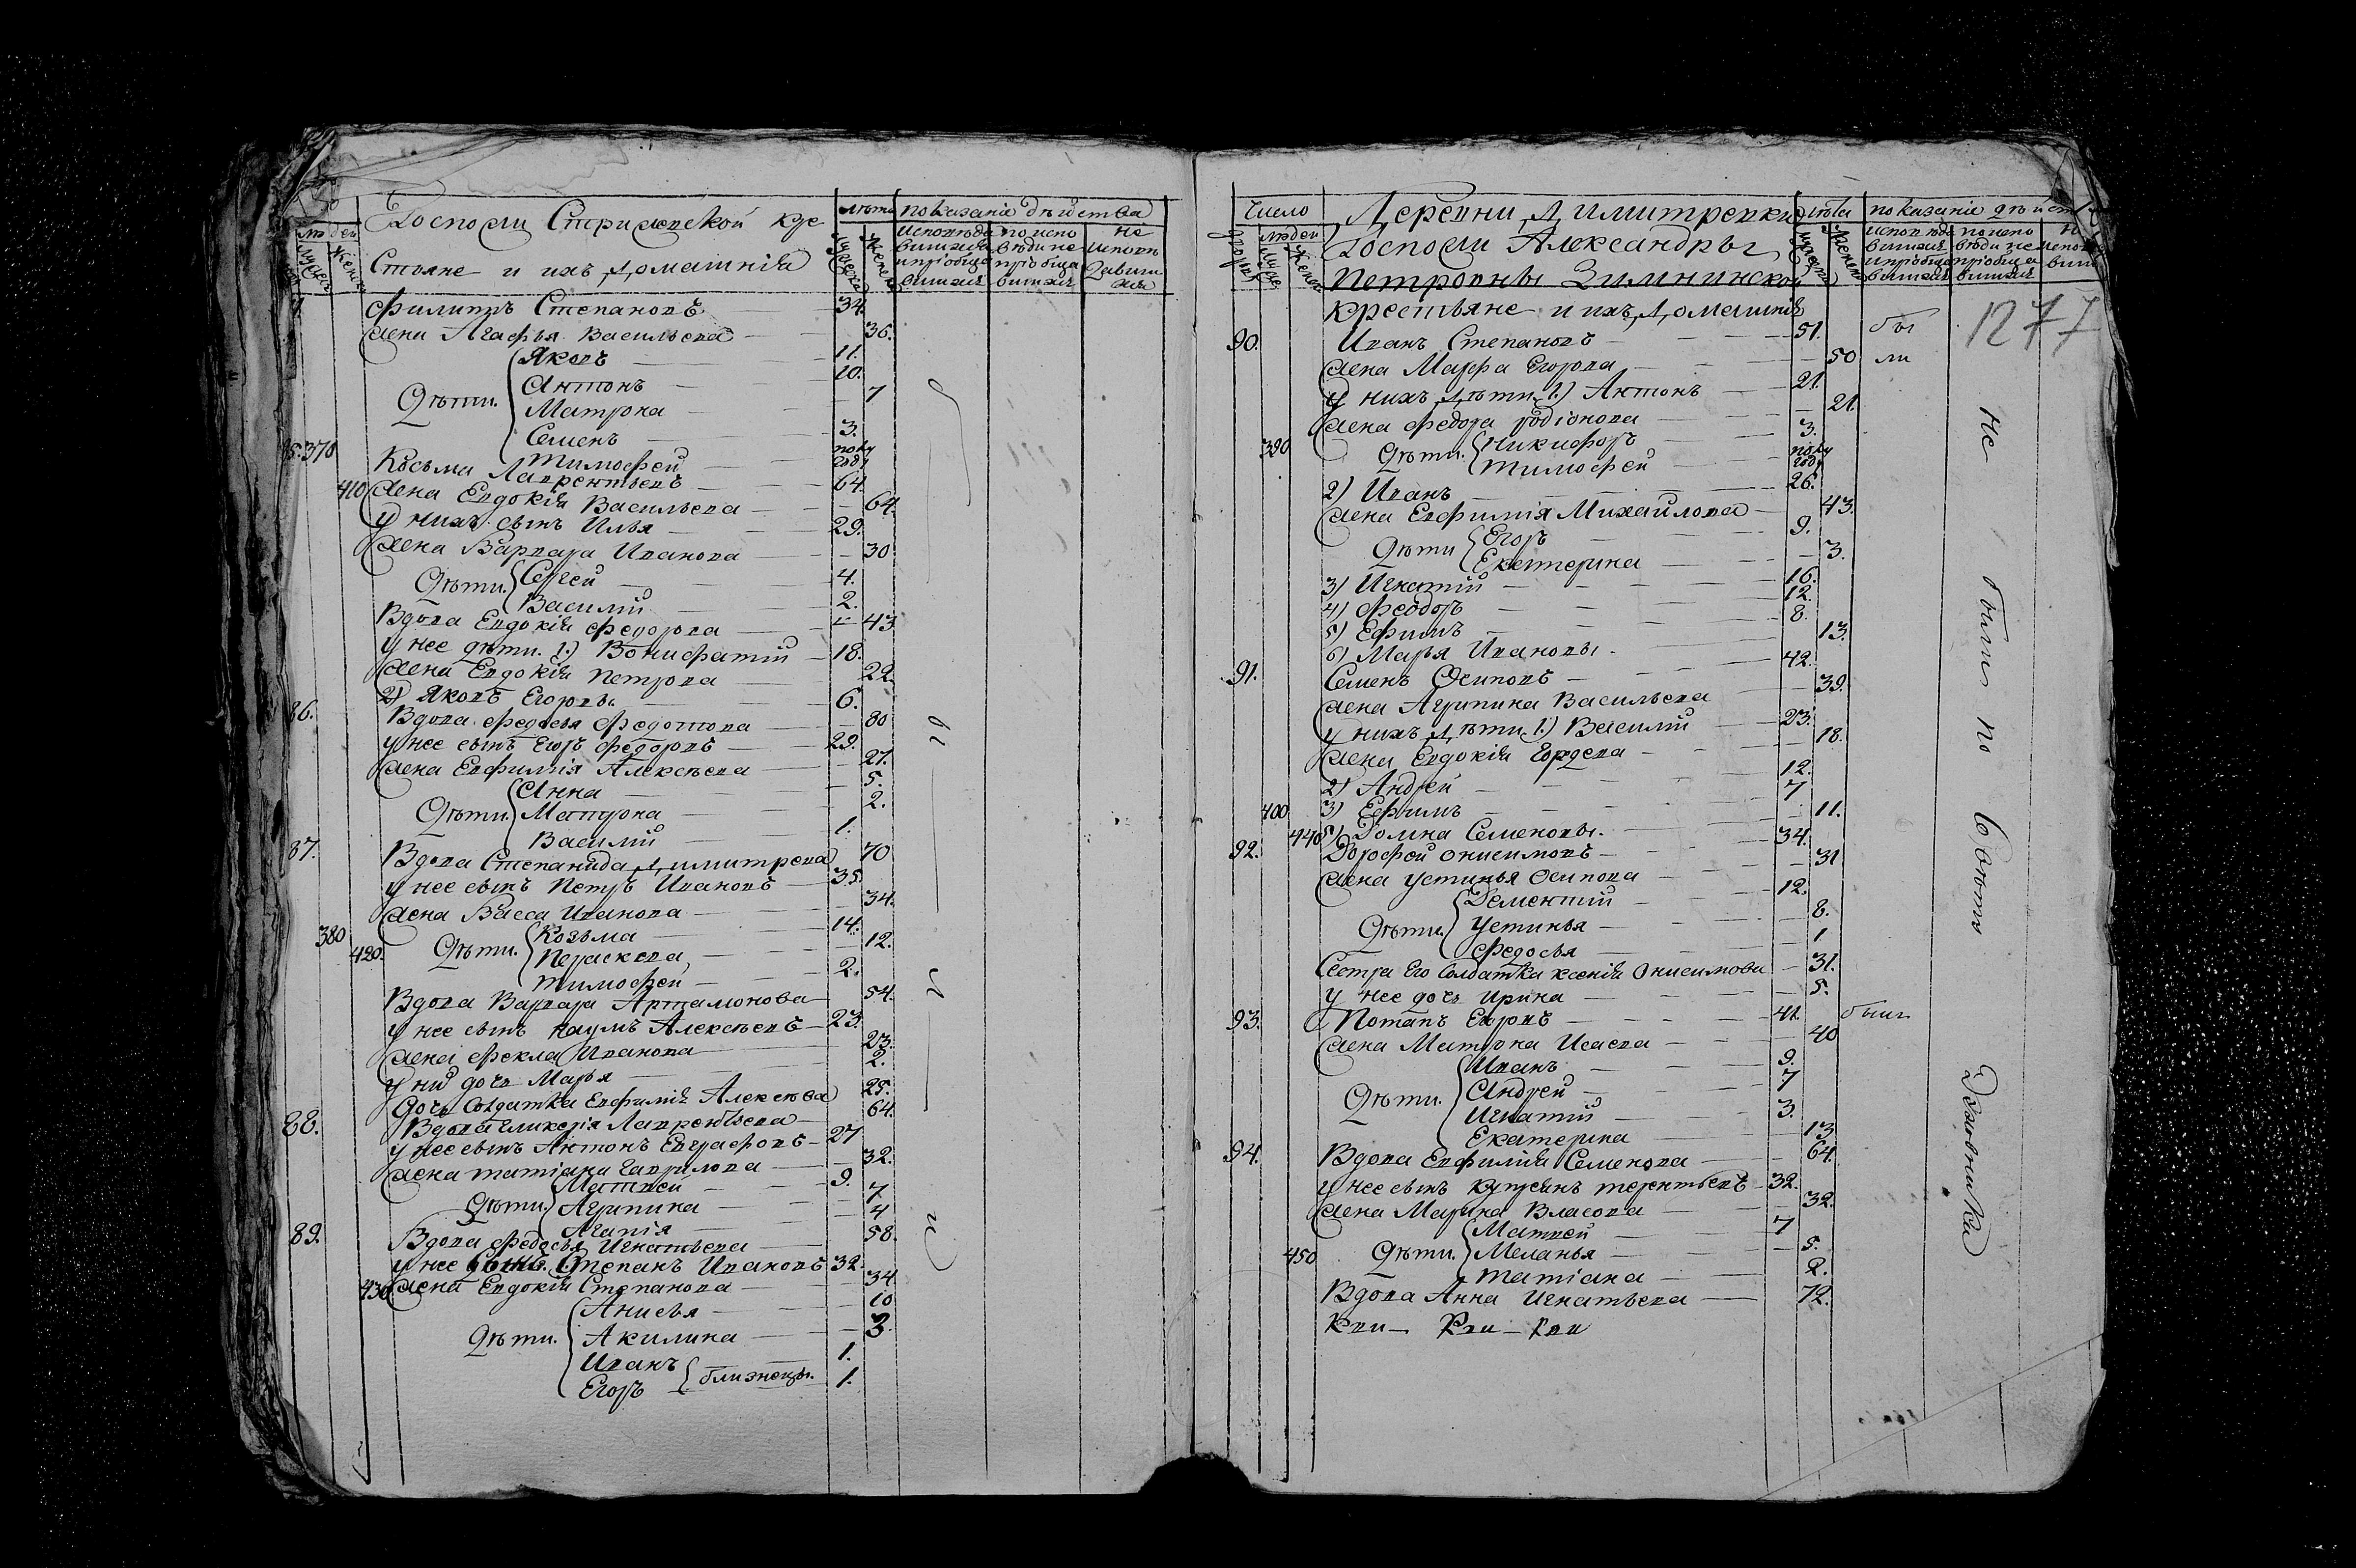 Госпожи Стрижевской кре
стьяне и ихъ домашнія
людей
Мужес
Женск
лѣта
Мужеска
Женск
показаніе дѣйства
исповѣда
вшихся
и пріобща
вшихся
по испо
вѣди не
пріобща
вшихся
не
исповѣ
давши
хся
Филиппъ Степановъ — 34.
жена Агафья Васильева — 36.
Дѣти. Яковъ — 11.
Антонъ — 10.
Матрона — 7
Семенъ — 3.
Тимофей — полу году
85. 370 Косьма Лаврентьевъ — 64.
410 жена Евдокія Васильева — 64.
У нихъ сынъ Илья — 29.
жена Варвара Иванова — 30
Дѣти. Сергей — 4.
Василій — 2.
Вдова Евдокія Федорова — 43
У нее дѣти. 1.) Вонифатій — 18.
жена Евдокія Петрова — 22.
2) Яковъ Егоровы — 6.
86. Вдова Федосья Федотова — 80
У нее сынъ Егоръ Федоровъ — 29.
жена Евфимія Алексѣева — 27.
Дѣти. Анна — 5.
Матрона — 2.
Василій — 1.
87. Вдова Степанида Димитрева — 70
У нее сынъ Петръ Ивановъ — 35.
жена Васса Иванова — 34.
380 Дѣти. Козьма — 14.
420. Параскева — 12.
Тимофей — 2.
Вдова Варвара Артамонова — 54.
У нее сынъ Наумъ Алексѣевъ — 23.
жена Фекла Иванова — 23.
У них дочь Марья — 2.
Дочь Солдатка Евфимія Алексѣева 25.
88. Вдова Гликерія Лаврентьева — 64.
У нее сынъ Антонъ Евграфовъ — 27
жена Татіана Гаврилова — 32.
Дѣти. Матвей — 9.
Агрипина — 7.
Агапія — 4
89. Вдова Федосья Игнатьева — 58.
У нее сынъ. Степанъ Ивановъ 32.
430 жена Евдокія Степанова — 34.
Дѣти. Анисья — 10
Акилина — 3.
Иванъ — 1.
Егоръ близнецы. 1.
бы
ли
Число
дворовъ
людей
Мужес
Женск
Деревни Димитревки
Госпожи Александры
Петровны Зимнинской
крестьяне и ихъ домашнія
лѣта
мужеска
Женск
показаніе дѣйст
исповѣда
вшихся
и пріобща
вшихся
по испо
вѣди не
пріобща
вшихся
1277
90. Иванъ Степановъ — 51. бы
жена Марфа Егорова — 50 ли
У нихъ дѣти. 1.) Антонъ — 21.
жена Федора Родіонова — 21.
390 Дѣти. Никифоръ — 3.
Тимофей — полу году
2) Иванъ — 26.
жена Евфимія Михайлова — 43.
Дѣти Егоръ — 9.
Екатерина — 3.
3) Игнатій — 16.
4) Феодоръ — 12.
5) Ефимъ — 8.
6) Марья Ивановы. — 13.
91. Семенъ Осиповъ — 42.
жена Агрипина Васильева — 39.
У нихъ дѣти. 1.) Василій — 23.
жена Евдокія Гордева — 18.
2) Андрей — 12.
400 3) Ефимъ — 7
440 5) Домна Семеновы. — 11.
92. Дорофей Онисимовъ — 34.
жена Устинья Осипова — 31
Дѣти. Дементій — 12.
Устинья — 8.
Федосья — 1
Сестра Его Солдатка Ксенія Онисимова — 31.
У нее дочь Ирина — 5.
93. Потапъ Егоровъ — 41. были
жена Матрона Исаева — 40
Дѣти. Иванъ — 9.
Андрей — 7
Игнатій — 3.
Екатерина — 13
94. Вдова Евфимія Семенова — 64.
У нее сынъ Купреянъ Терентьевъ 32.
жена Марина Власова — 32.
Дѣти. Матвей — 7
450 Меланья — 5.
Татіана — 2.
Вдова Анна Игнатьева — 72.
Не были по Совѣту Духовника